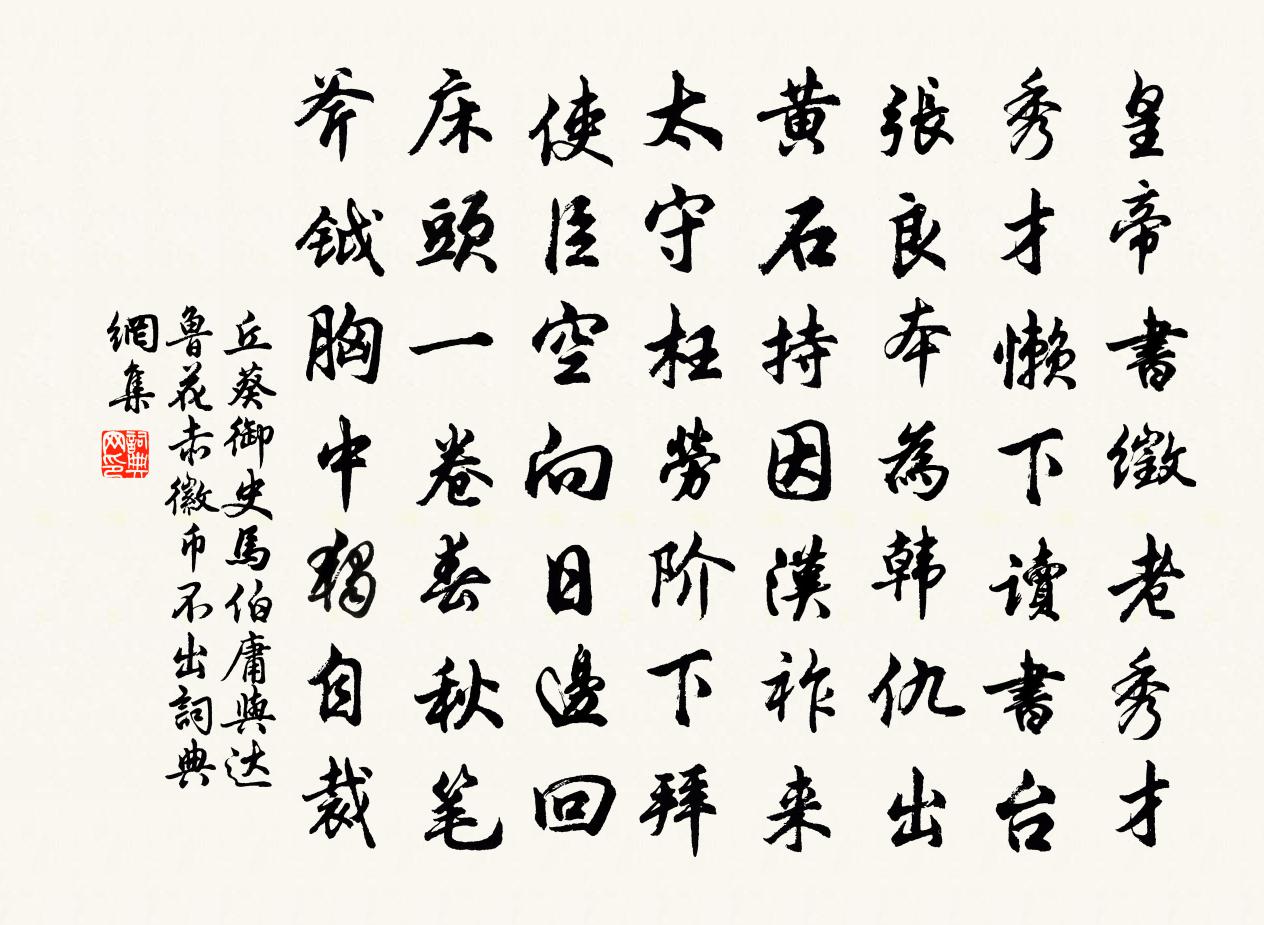 皇帝書徵老秀才
秀才懶下讀書台
張良本為韩仇出
黄石持因漢祚来
太守枉劳阶下拜
使臣空向日邊回
床頭一卷春秋笔
斧鉞胸中獨自裁
丘葵御史馬伯庸與达
魯花赤徽币不出詞典
網集
詞典网印